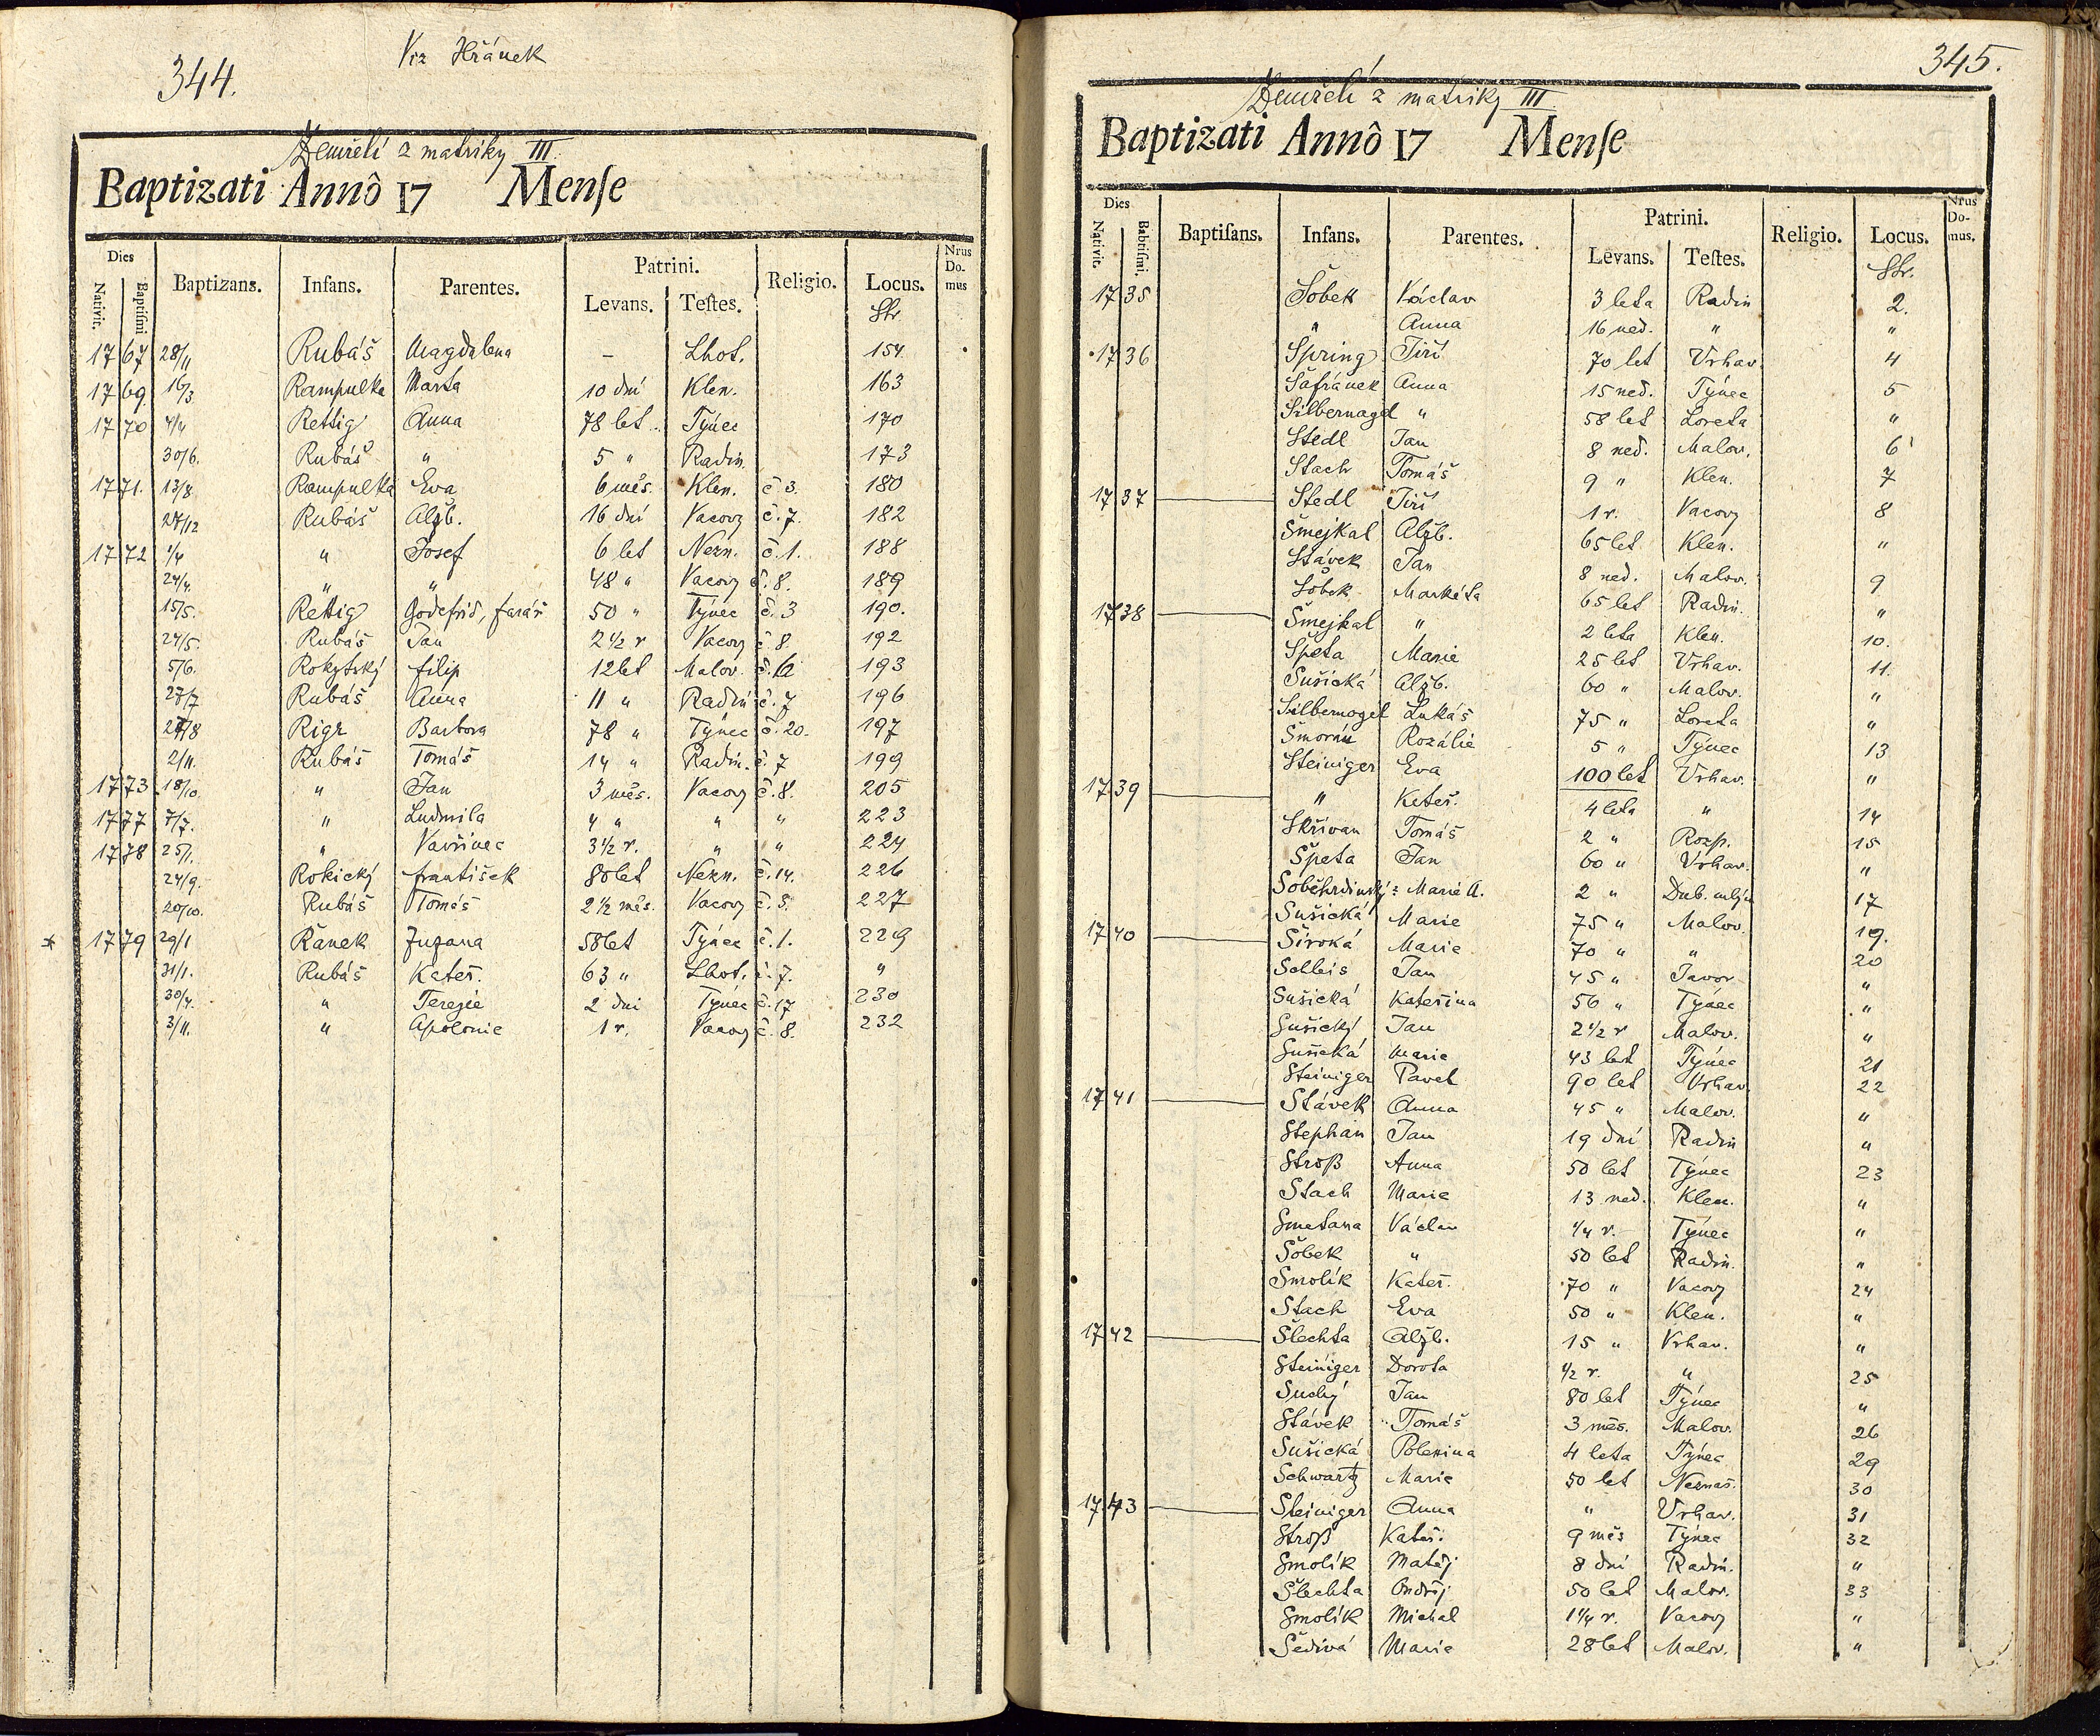 344.
Viz Hřánek
Zemřelí z matriky III.
Baptizati Annô 17 Menſe
Dies Nativit. Baptiſmi Baptizans. Infans. Parentes. Patrini. Levans. Teſtes. Religio. Locus. Nrus Do. mus
Str
1767 28/11 Rubáš Magdalena – Lhot. 154
1769 16/3 Rampulka Marta 10 dní Klen. 163
1770 4/4 Rettig Anna 78 let Týnec 170
30/6. Rubáš " 5 " Radin. 173
1771. 13/8 Rampulka Eva 6 měs. Klen. č 3. 180
27/12 Rubáš Alžb. 16 dní Vacovy č. 7. 182
1772 1/4 " Josef 6 let Nezn. č. 1. 188
24/4. " " 48 " Vacovy č. 8. 189
15/5. Rettig Godefrid, farář 50 " Týnec č. 3 190.
24/5. Rubáš Jan 2 1/2 r Vacovy č 8. 192
5/6. Rokytský filip 12 let Malov. 193
27/7 Rubáš Anna 11 " Radin č. 7 196
27/8 Rigr Barbora 78 " Týnec č. 20. 197
2/11. Rubáš Tomáš 14 " Radin. č. 7 199
1773 18/10. " Jan 3 měs. Vacovy č. 8. 205
1777 7/7. " Ludmila 4 " " " 223
1778 25/1. " Vavřinec 3 1/2 r. " " 224
24/9. Rokický františek 80 let Nezn. č. 14. 226
20/10. Rubáš Tomáš 2 1/2 měs. Vacovy č. 8. 227
* 1779 29/1 Řanek Zuzana 58 let Týnec č. 1. 229
31/1. Rubáš Kateř. 63 " Lhot. č. 7. "
30/4. " Terezie 2 dni Týnec č. 17 230
3/11. " Apolonie 1 r. Vacovy č. 8. 232
345.
Zemřelí z matriky III
Baptizati Annô 17 Menſe
Dies Nativit. Babtiſmi. Baptiſans. Infans. Parentes. Patrini. Levans. Teſtes. Religio. Locus. Nrus Do- mus.
Str.
1735 Šobek Václav 3 leta Radin 2.
" Anna 16 ned. " "
1736 Spring Jiří 70 let Vrhav. 4
Šafránek Anna 15 ned. Týnec 5
Silbernagel " 58 let Loreta "
Stedl Jan 8 ned. Malov. 6
Stach Tomáš 9 " Klen. 7
1737 Stedl Jiří 1 r. Vacovy 8
Šmejkal Alžb. 65 let Klen. "
Stávek Jan 8 ned. Malov. 9
Šobek Markéta 65 let Radin. "
1738 Šmejkal " 2 leta Klen. 10.
Špeta Marie 25 let Vrhav. 11.
Sušická Alžb. 60 " Malov. "
Silbernagel Lukáš 75 " Loreta "
Rozálie 5 " Týnec 13
Steiniger Eva 100 let Vrhav. "
1739 " Kateř. 4 leta " 14
Skřivan Tomáš 2 " Rozp. 15
Špeta Jan 60 " Vrhav. "
Soběhrdinský: Marie A. 2 " Dub. mlýn 17
Sušická Marie 75 " Malov. 19.
1740 Široká Marie 70 " " 20
Solleis Jan 45 " Javor "
Sušická Kateřina 56 " Týnec "
Sušický Jan 2 1/2 r Malov. "
Sušická Marie 43 let Týnec 21
Steiniger Pavel 90 let Vrhav. 22
1741 Stávek Anna 45 " Malov. "
Stephan Jan 19 dní Radin "
Stroß Anna 50 let Týnec 23
Stach Marie 13 ned. Klen. "
Smetana Václav 1/4 r. Týnec "
Šobek " 50 let Radin. "
Smolík Kateř. 70 " Vacovy 24
Stach Eva 50 " Klen. "
1742 Šlechta Alžb. 15 " Vrhav. "
Steiniger Dorota 1/2 r. " 25
Suchý Jan 80 let Týnec "
Stávek Tomáš 3 měs. Malov. 26
Sušická Polexina 4 leta Týnec 29
Schwartz Marie 50 let Neznaš. 30
1743 Steiniger Anna " Vrhav. 31
Stroß Kateř. 9 měs Týnec 32
Smolík Matěj 8 dní Radin. "
Šlechta Ondřej 50 let Malov. 33
Smolík Michal 1 1/4 r. Vacovy "
Šedivá Marie 28 let Malov. "